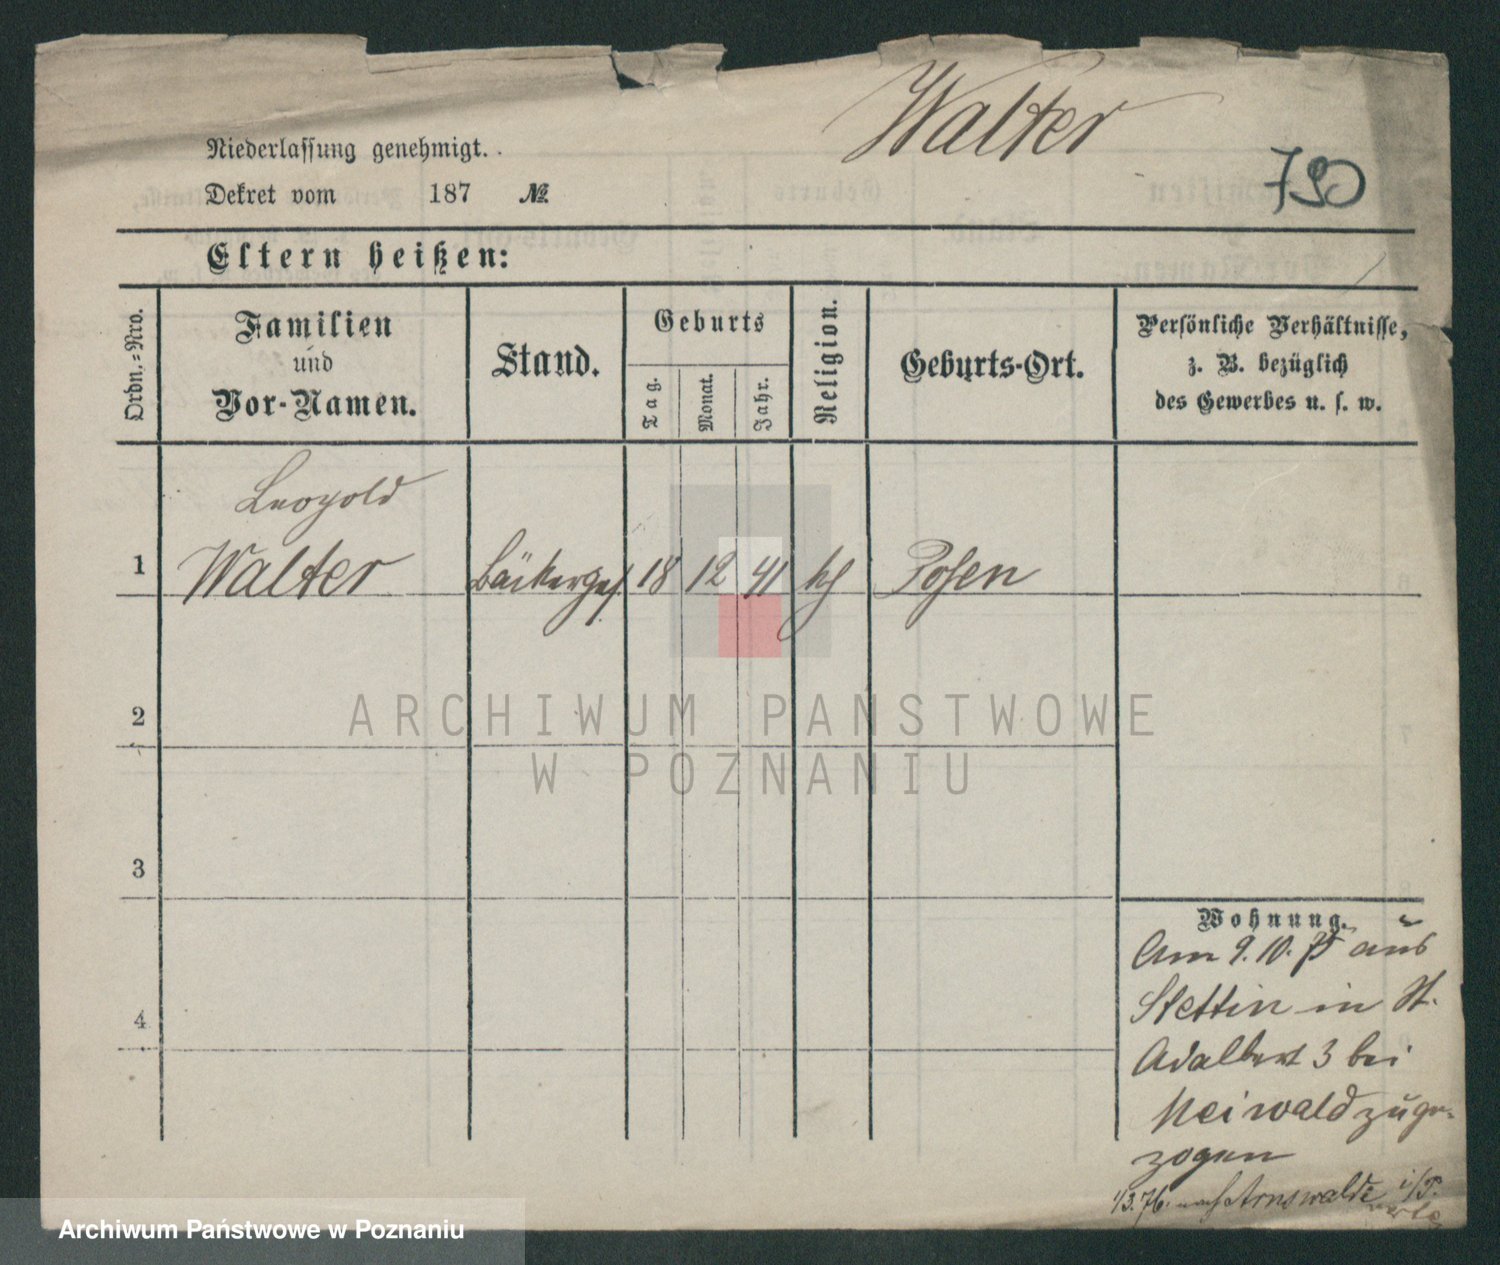 Walter
790
Niederlassung genehmigt.
Dekret vom 187 №
Eltern heißen:
Ordn.=Nro.
Familien
und
Vor-Namen.
Stand.
Geburts
Tag.
Monat.
Jahr.
Religion.
Geburts-Ort.
Persönliche Verhältnisse,
z. B. bezüglich
des Gewerbes u. s. w.
Leopold
1 Walter Bäckerges. 18 12 41 kh Posen
2
3
4
ARCHIWUM PAŃSTWOWE
W POZNANIU
Wohnung.
Am 9. 10. 75 aus
Stettin in St.
Adalbert 3 bei
Neiwald zuge-
zogen
1/3. 76. nach Arnswalde i/P.
Archiwum Państwowe w Poznaniu